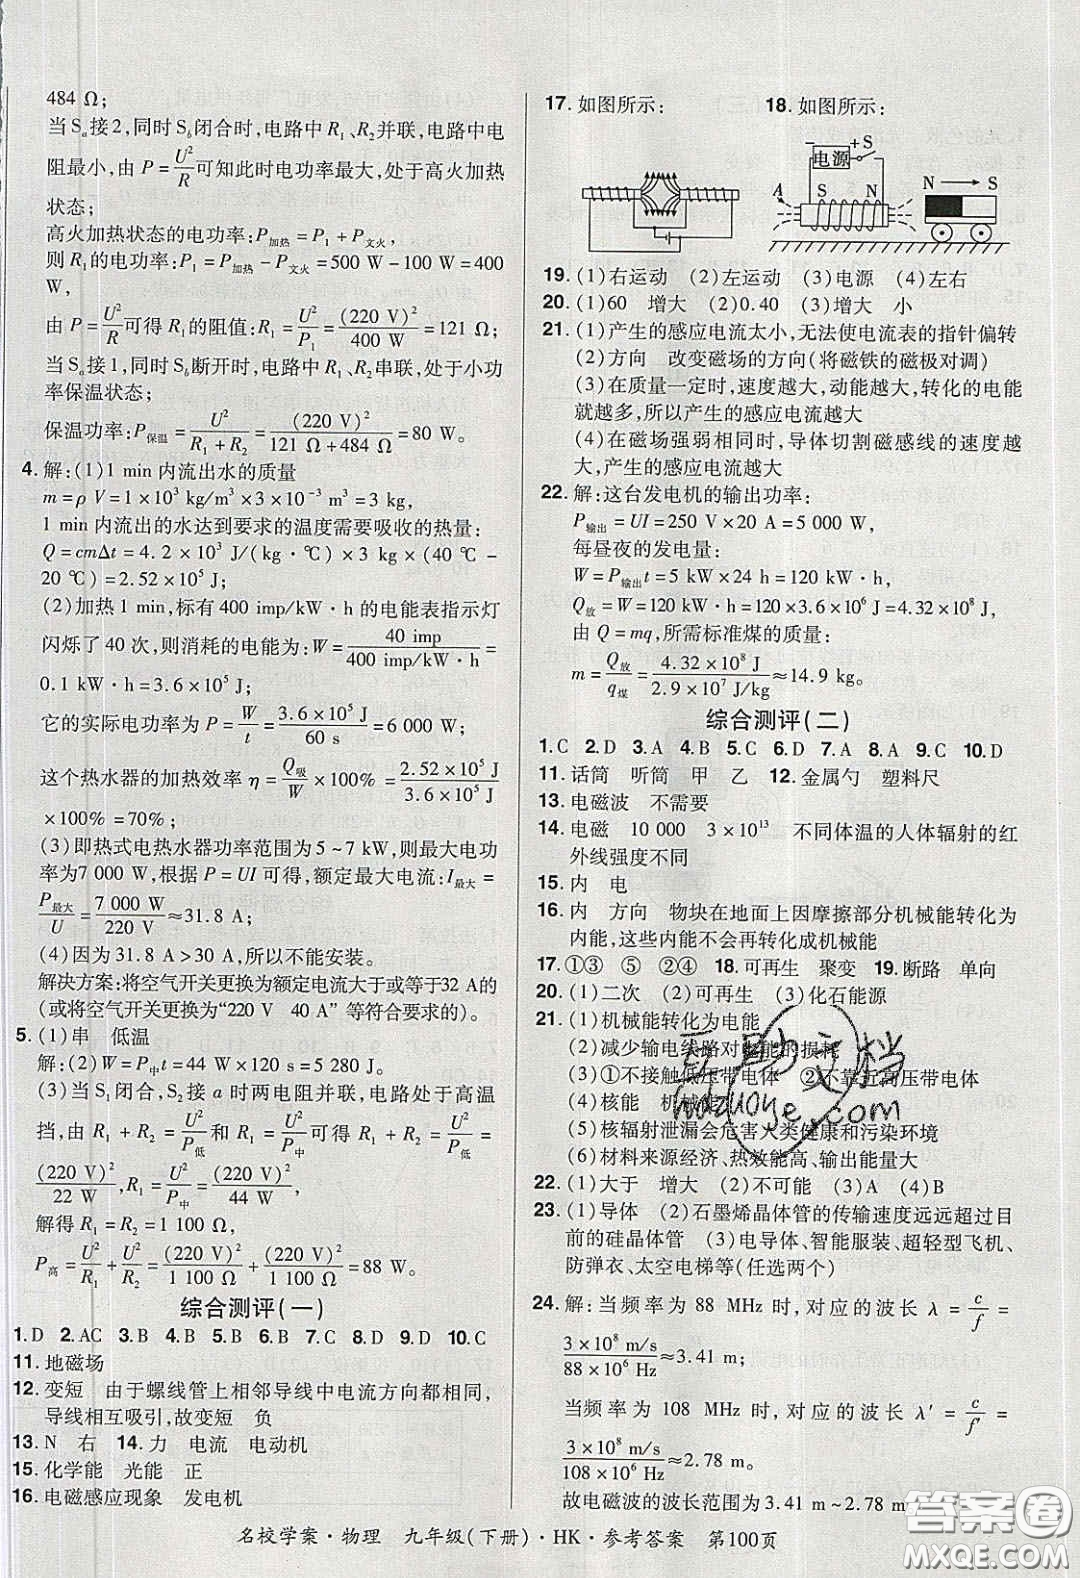 484 Ω;
当 Sₐ接 2,同时 S_b闭合时,电路中 R₁、R₂并联,电路中电
阻最小,由 P=U²/R可知此时电功率最大,处于高火加热
状态;
高火加热状态的电功率:P加热=P₁+P文火,
则 R₁的电功率:P₁=P加热-P文火=500 W-100 W=400
W,
由 P=U²/R可得 R₁的阻值:R₁=U²/P₁=(220 V)²/400 W=121 Ω;
当 Sₐ接 1,同时 S_b断开时,电路中 R₁、R₂串联,处于小功
率保温状态,
保温功率:P保温=U²/(R₁+R₂)=(220 V)²/(121 Ω+484 Ω)=80 W。
4. 解:(1)1 min 内流出水的质量
m=ρ V=1×10³ kg/m³×3×10⁻³ m³=3 kg,
1 min 内流出的水达到要求的温度需要吸收的热量:
Q=cmΔt=4.2×10³ J/(kg·℃)×3 kg×(40 ℃-
20 ℃)=2.52×10⁵ J;
(2)加热 1 min,标有 400 imp/kW·h 的电能表指示灯
闪烁了 40 次,则消耗的电能为:W=40 imp/(400 imp/kW·h)=
0.1 kW·h=3.6×10⁵ J;
它的实际电功率为 P=W/t=3.6×10⁵ J/60 s=6 000 W;
这个热水器的加热效率 η=Q吸/W×100%=2.52×10⁵ J/3.6×10⁵ J
×100%=70%;
(3)即热式电热水器功率范围为 5~7 kW,则最大电功
率为7 000 W,根据 P=UI 可得,额定最大电流:I最大=
P最大/U=7 000 W/220 V≈31.8 A;
(4)因为 31.8 A>30 A,所以不能安装。
解决方案:将空气开关更换为额定电流大于或等于32 A的
(或将空气开关更换为“220 V 40 A”等符合要求的)。
5. (1)串 低温
解:(2)W=P中t=44 W×120 s=5 280 J。
(3)当 S₁闭合,S₂接 a 时两电阻并联,电路处于高温
挡,由 R₁+R₂=U²/P低和 R₁=U²/P中可得 R₁+R₂=U²/P低=
(220 V)²/22 W,R₁=U²/P中=(220 V)²/44 W,
解得 R₁=R₂=1 100 Ω,
P高=U²/R₁+U²/R₂=(220 V)²/1 100 Ω+(220 V)²/1 100 Ω=88 W。
综合测评(一)
1. D 2. AC 3. B 4. B 5. B 6. B 7. C 8. D 9. D 10. C
11. 地磁场
12. 变短 由于螺线管上相邻导线中电流方向都相同,
导线相互吸引,故变短 负
13. N 右 14. 力 电流 电动机
15. 化学能 光能 正
16. 电磁感应现象 发电机
17. 如图所示: 18. 如图所示:
- + S
电源
A S N N S
19. (1)右运动 (2)左运动 (3)电源 (4)左右
20. (1)60 增大 (2)0.40 (3)增大 小
21. (1)产生的感应电流太小,无法使电流表的指针偏转
(2)方向 改变磁场的方向(将磁铁的磁极对调)
(3)在质量一定时,速度越大,动能越大,转化的电能
就越多,所以产生的感应电流越大
(4)在磁场强弱相同时,导体切割磁感线的速度越
大,产生的感应电流越大
22. 解:这台发电机的输出功率:
P输出=UI=250 V×20 A=5 000 W,
每昼夜的发电量:
W=P输出t=5 kW×24 h=120 kW·h,
Q放=W=120 kW·h=120×3.6×10⁶ J=4.32×10⁸ J,
由 Q=mq,所需标准煤的质量:
m=Q放/q煤=4.32×10⁸ J/2.9×10⁷ J/kg≈14.9 kg。
综合测评(二)
1. C 2. D 3. A 4. B 5. C 6. D 7. A 8. A 9. C 10. D
11. 话筒 听筒 甲 乙 12. 金属勺 塑料尺
13. 电磁波 不需要
14. 电磁 10 000 3×10¹³ 不同体温的人体辐射的红
外线强度不同
15. 内 电
16. 内 方向 物块在地面上因摩擦部分机械能转化为
内能,这些内能不会再转化成机械能
17. ①③ ⑤ ②④ 18. 可再生 聚变 19. 断路 单向
20. (1)二次 (2)可再生 (3)化石能源
21. (1)机械能转化为电能
(2)减少输电线路对电能的损耗
(3)①不接触低压带电体 ②不靠近高压带电体
(4)核能 机械能
(5)核辐射泄漏会危害人类健康和污染环境
(6)材料来源经济、热效能高、输出能量大
22. (1)大于 增大 (2)不可能 (3)A (4)B
23. (1)导体 (2)石墨烯晶体管的传输速度远远超过目
前的硅晶体管 (3)电导体、智能服装、超轻型飞机、
防弹衣、太空电梯等(任选两个)
24. 解:当频率为 88 MHz 时,对应的波长 λ=c/f=
3×10⁸ m/s/88×10⁶ Hz≈3.41 m;
当频率为 108 MHz 时,对应的波长 λ′=c/f′=
3×10⁸ m/s/108×10⁶ Hz≈2.78 m。
故电磁波的波长范围为 3.41 m~2.78 m
名校学案·物理 九年级(下册)·HK·参考答案 第100页
互助文档
hdzuoye.com
答案圈
MXQE.COM